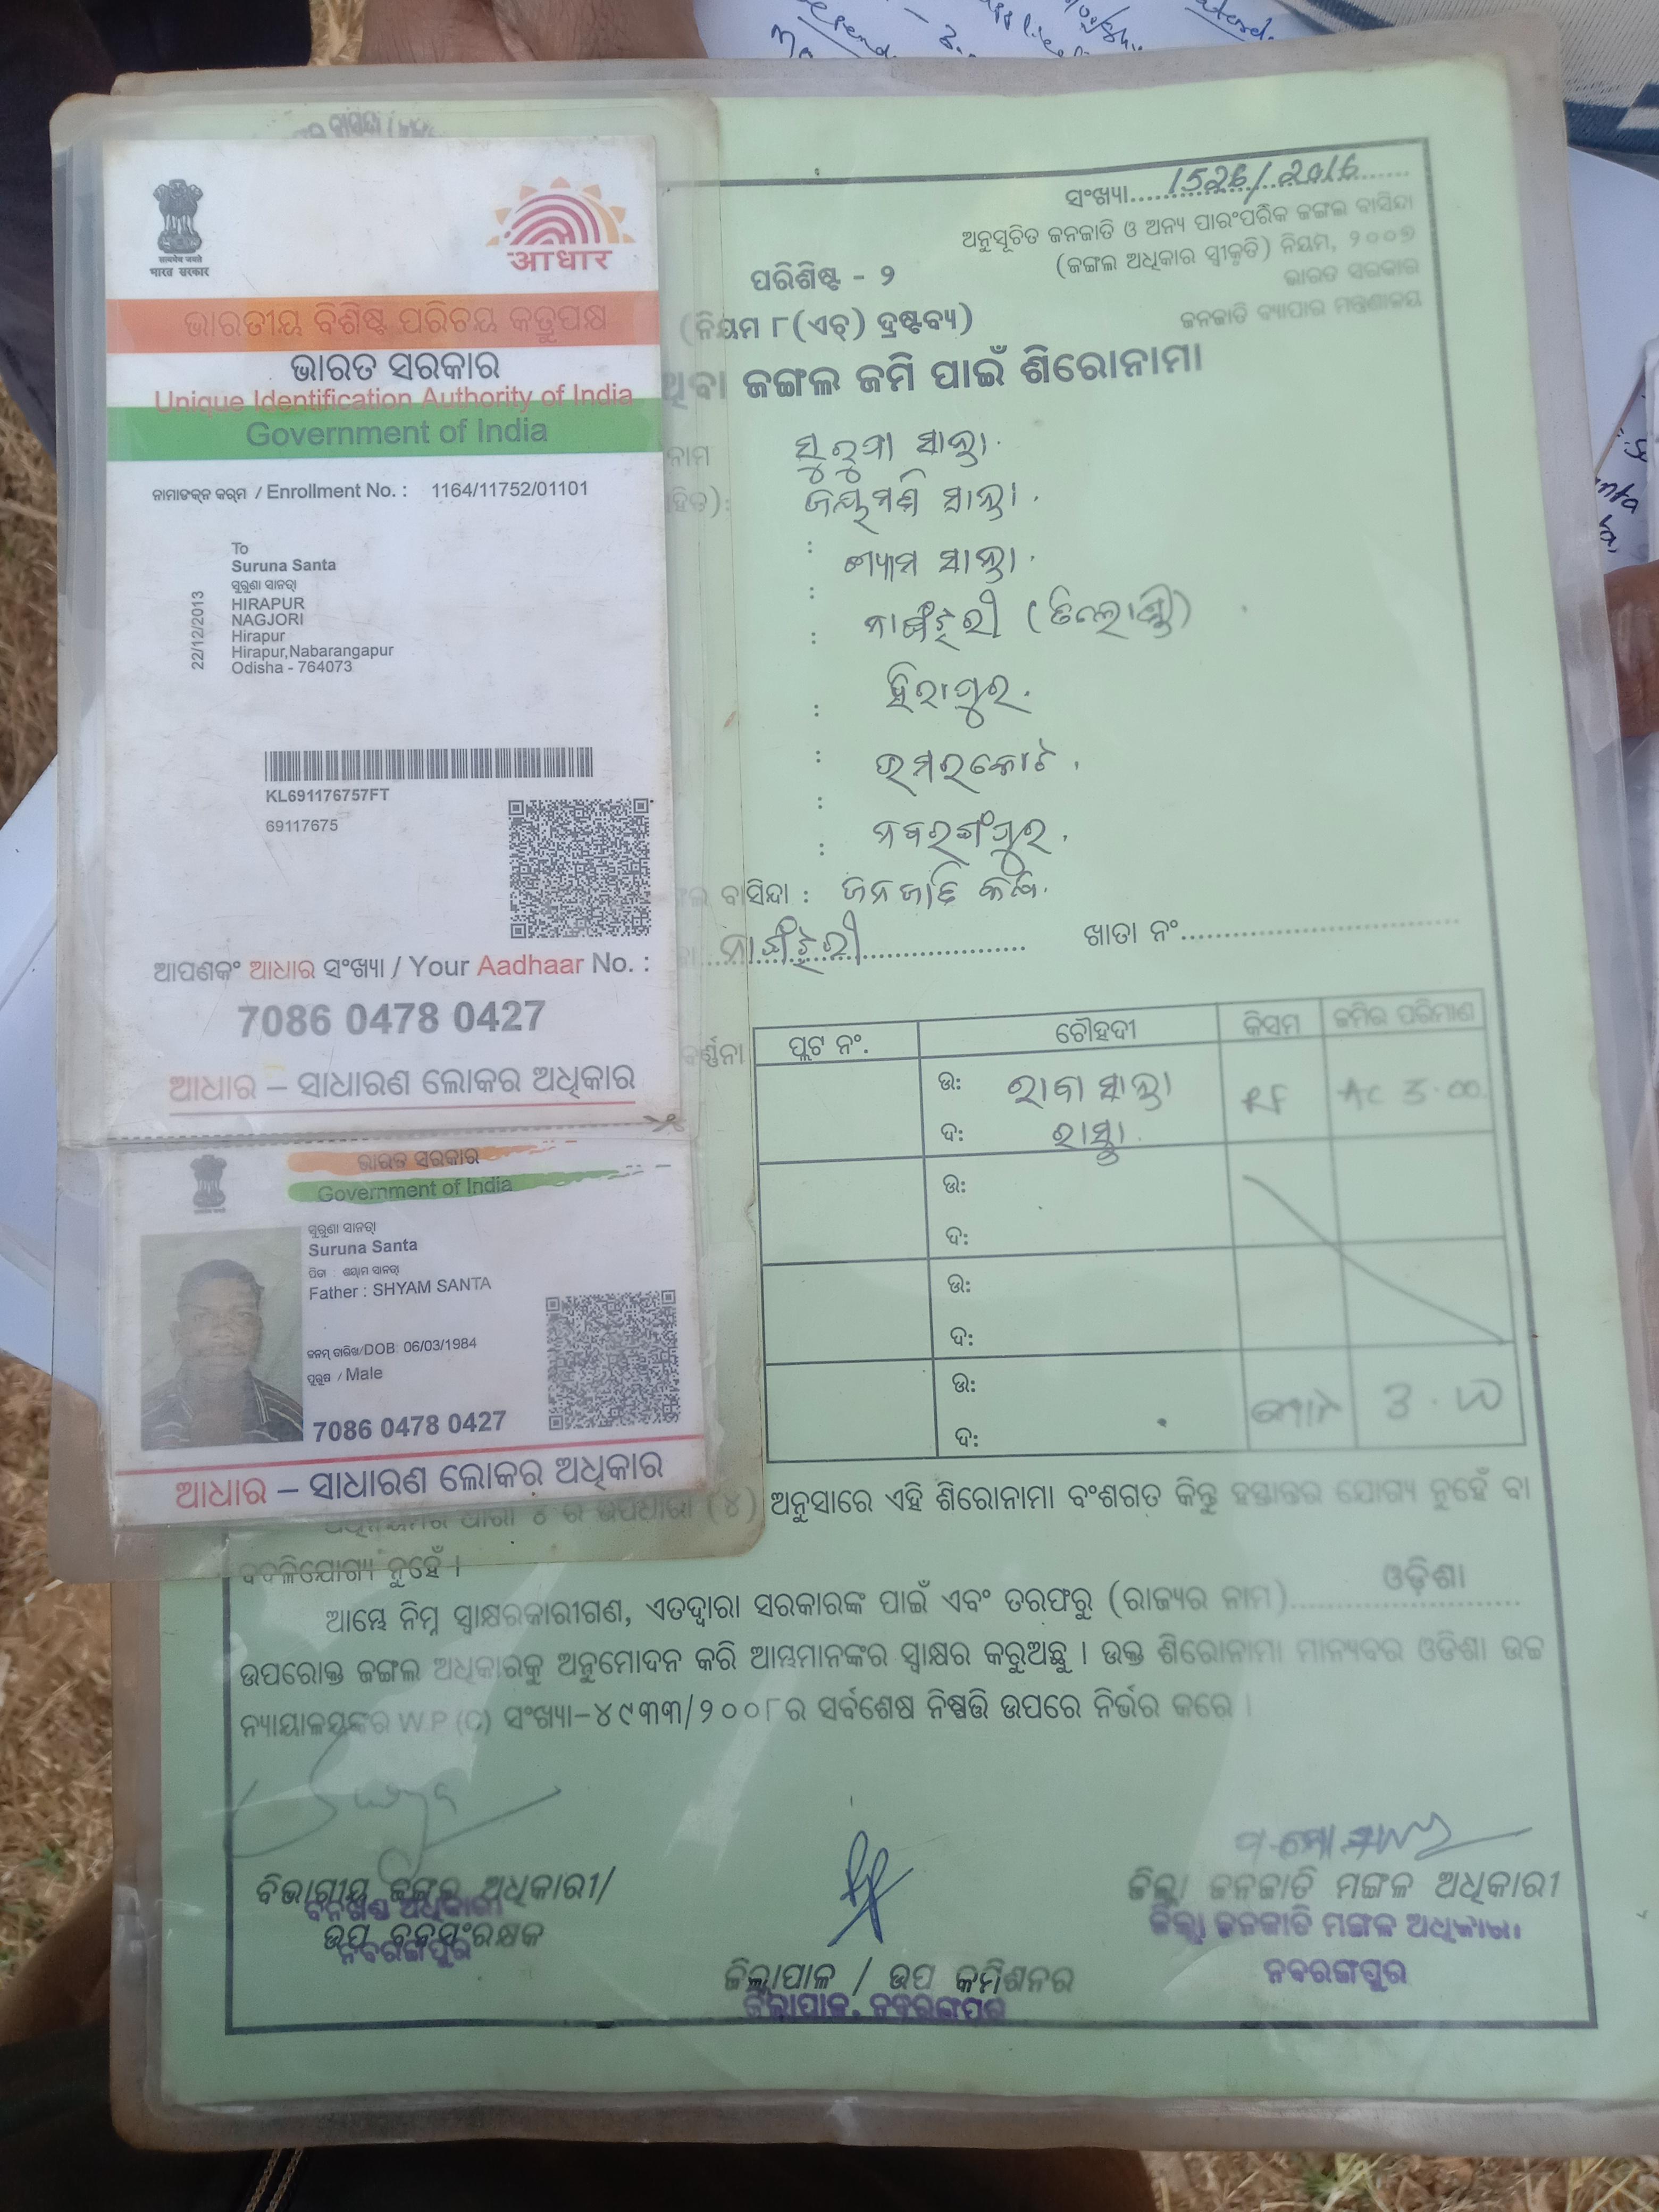 सत्यमेव जयते
भारत सरकार
आधार
ଭାରତୀୟ ବିଶିଷ୍ଟ ପରିଚୟ କର୍ତୃପକ୍ଷ
ଭାରତ ସରକାର
Unique Identification Authority of India
Government of India
ନାମାଙ୍କନ କ୍ରମ / Enrollment No. : 1164/11752/01101
To
Suruna Santa
ସୁରୁଣା ସାନତା
HIRAPUR
NAGJORI
Hirapur
Hirapur,Nabarangapur
Odisha - 764073
22/12/2013
KL691176757FT
69117675
ଆପଣଙ୍କ ଆଧାର ସଂଖ୍ୟା / Your Aadhaar No. :
7086 0478 0427
ଆଧାର – ସାଧାରଣ ଲୋକର ଅଧିକାର
ଭାରତ ସରକାର
Government of India
ସୁରୁଣା ସାନତା
Suruna Santa
ପିତା : ଶ୍ୟାମ ସାନତା
Father : SHYAM SANTA
ଜନ୍ମ ତାରିଖ/DOB: 06/03/1984
ପୁରୁଷ / Male
7086 0478 0427
ଆଧାର – ସାଧାରଣ ଲୋକର ଅଧିକାର
ସଂଖ୍ୟା 1526/2016
ଅନୁସୂଚିତ ଜନଜାତି ଓ ଅନ୍ୟ ପାରଂପରିକ ଜଙ୍ଗଲ ବାସିନ୍ଦା
(ଜଙ୍ଗଲ ଅଧିକାର ସ୍ୱୀକୃତି) ନିୟମ, ୨୦୦୭
ଭାରତ ସରକାର
ଜନଜାତି ବ୍ୟାପାର ମନ୍ତ୍ରଣାଳୟ
ପରିଶିଷ୍ଟ - ୨
(ନିୟମ ୮(ଏଚ୍) ଦ୍ରଷ୍ଟବ୍ୟ)
ଥିବା ଜଙ୍ଗଲ ଜମି ପାଇଁ ଶିରୋନାମା
ନାମ ସୁରୁନା ସାନ୍ତା
ଜୟମଣି ସାନ୍ତା
: ଶ୍ୟାମ ସାନ୍ତା
:
: ହିରାପୁର
: ଉମରକୋଟ
: ନବରଙ୍ଗପୁର
ବାସିନ୍ଦା : ଜନଜାତି
ଖାତା ନଂ
ବର୍ଣ୍ଣନା
ପ୍ଲଟ ନଂ. ଚୌହଦୀ କିସମ ଜମିର ପରିମାଣ
ଉ: ସାନ୍ତା RF AC 3.00
ଦ: ରାସ୍ତା
ଉ:
ଦ:
ଉ:
ଦ:
ଉ: ମୋଟ 3.00
ଦ:
ଅଧିନିୟମର ଧାରା ୪ ର ଉପଧାରା (୪) ଅନୁସାରେ ଏହି ଶିରୋନାମା ବଂଶଗତ କିନ୍ତୁ ହସ୍ତାନ୍ତର ଯୋଗ୍ୟ ନୁହେଁ ବା
ବଦଳିଯୋଗ୍ୟ ନୁହେଁ ।
ଆମ୍ଭେ ନିମ୍ନ ସ୍ୱାକ୍ଷରକାରୀଗଣ, ଏତଦ୍ୱାରା ସରକାରଙ୍କ ପାଇଁ ଏବଂ ତରଫରୁ (ରାଜ୍ୟର ନାମ) ଓଡ଼ିଶା
ଉପରୋକ୍ତ ଜଙ୍ଗଲ ଅଧିକାରକୁ ଅନୁମୋଦନ କରି ଆମ୍ଭମାନଙ୍କର ସ୍ୱାକ୍ଷର କରୁଅଛୁ । ଉକ୍ତ ଶିରୋନାମା ମାନ୍ୟବର ଓଡିଶା ଉଚ୍ଚ
ନ୍ୟାୟାଳୟଙ୍କର W.P (C) ସଂଖ୍ୟା-୪୯୩୩/୨୦୦୮ର ସର୍ବଶେଷ ନିଷ୍ପତ୍ତି ଉପରେ ନିର୍ଭର କରେ ।
ବିଭାଗୀୟ ଜଙ୍ଗଲ ଅଧିକାରୀ/
ବନଖଣ୍ଡ ଅଧିକାରୀ
ଉପ ବନସଂରକ୍ଷକ
ନବରଙ୍ଗପୁର
ଜିଲ୍ଲାପାଳ / ଉପ କମିଶନର
ଜିଲ୍ଲାପାଳ, ନବରଙ୍ଗପୁର
ଜିଲ୍ଲା ଜନଜାତି ମଙ୍ଗଳ ଅଧିକାରୀ
ଜିଲ୍ଲା ଜନଜାତି ମଙ୍ଗଳ ଅଧିକାରୀ
ନବରଙ୍ଗପୁର